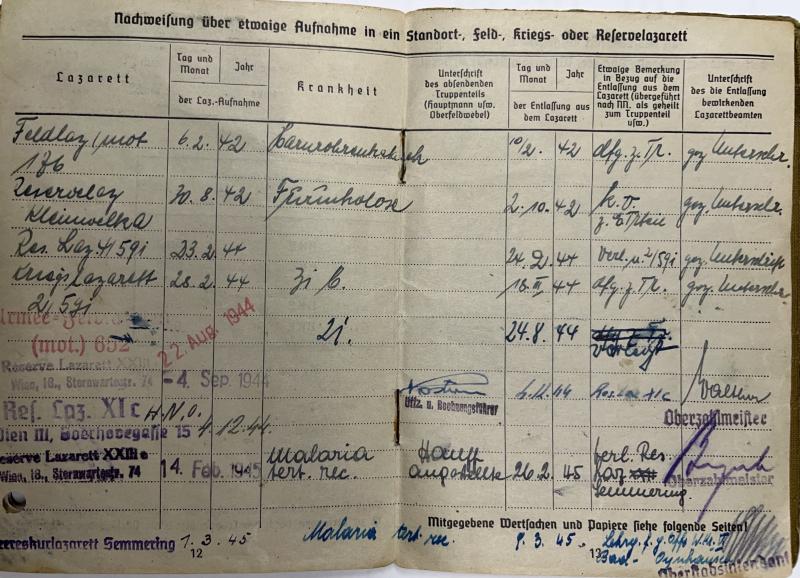 Nachweisung über etwaige Aufnahme in ein Standort-, Feld-, Kriegs- oder Reservelazarett
Lazarett
Tag und Monat
Jahr
der Laz.-Aufnahme
Krankheit
Unterschrift
des absendenden
Truppenteils
(Hauptmann usw.
Oberfeldwebel)
Tag und Monat
Jahr
der Entlassung aus
dem Lazarett
Etwaige Bemerkung
in Bezug auf die
Entlassung aus dem
Lazarett (übergeführt
nach NN. als geheilt
zum Truppenteil
usw.)
Unterschrift
des die Entlassung
bewirkenden
Lazarettbeamten
Feldlaz/mot 6.2. 42 10/2. 42 dfg. z. Tr. gez. Unterschr.
176
Reservelaz 30. 8. 42 2. 10. 42 k.v. gez. Unterschr.
Kleinwelka
Res. Laz 4/591 23. 2 44 24. 2. 44 verl. n. 2/591 gez. Unterschrift
Kriegslazarett 28. 2. 44 18. III. 44 dfg. z. Tr. gez. Unterschr.
2/591
(mot.) 692 22. Aug. 1944 24.8. 44 verlegt
Reserve Lazarett XXIII
Wien, 18., Sternwartestr. 74 - 4. Sep. 1944
Res. Laz. XIc H.N.O. Offz. u. Rechnungsführer 44 Res. Laz XIc Oberzahlmeister
Wien III, Boerhavegasse 15 4.12.44
Reserve Lazarett XXIII Malaria 26. 2. 45 verl. Res.
Wien, 18., Sternwartestr. 74 14. Feb. 1945 tert. rec. Laz Oberzahlmeister
Semmering
Mitgegebene Wertsachen und Papiere siehe folgende Seiten!
Heereskurlazarett Semmering 1. 3. 45 Malaria tert. rec. 9. 3. 45.
Bad-Oynhausen
12
13
Oberstabsintendant